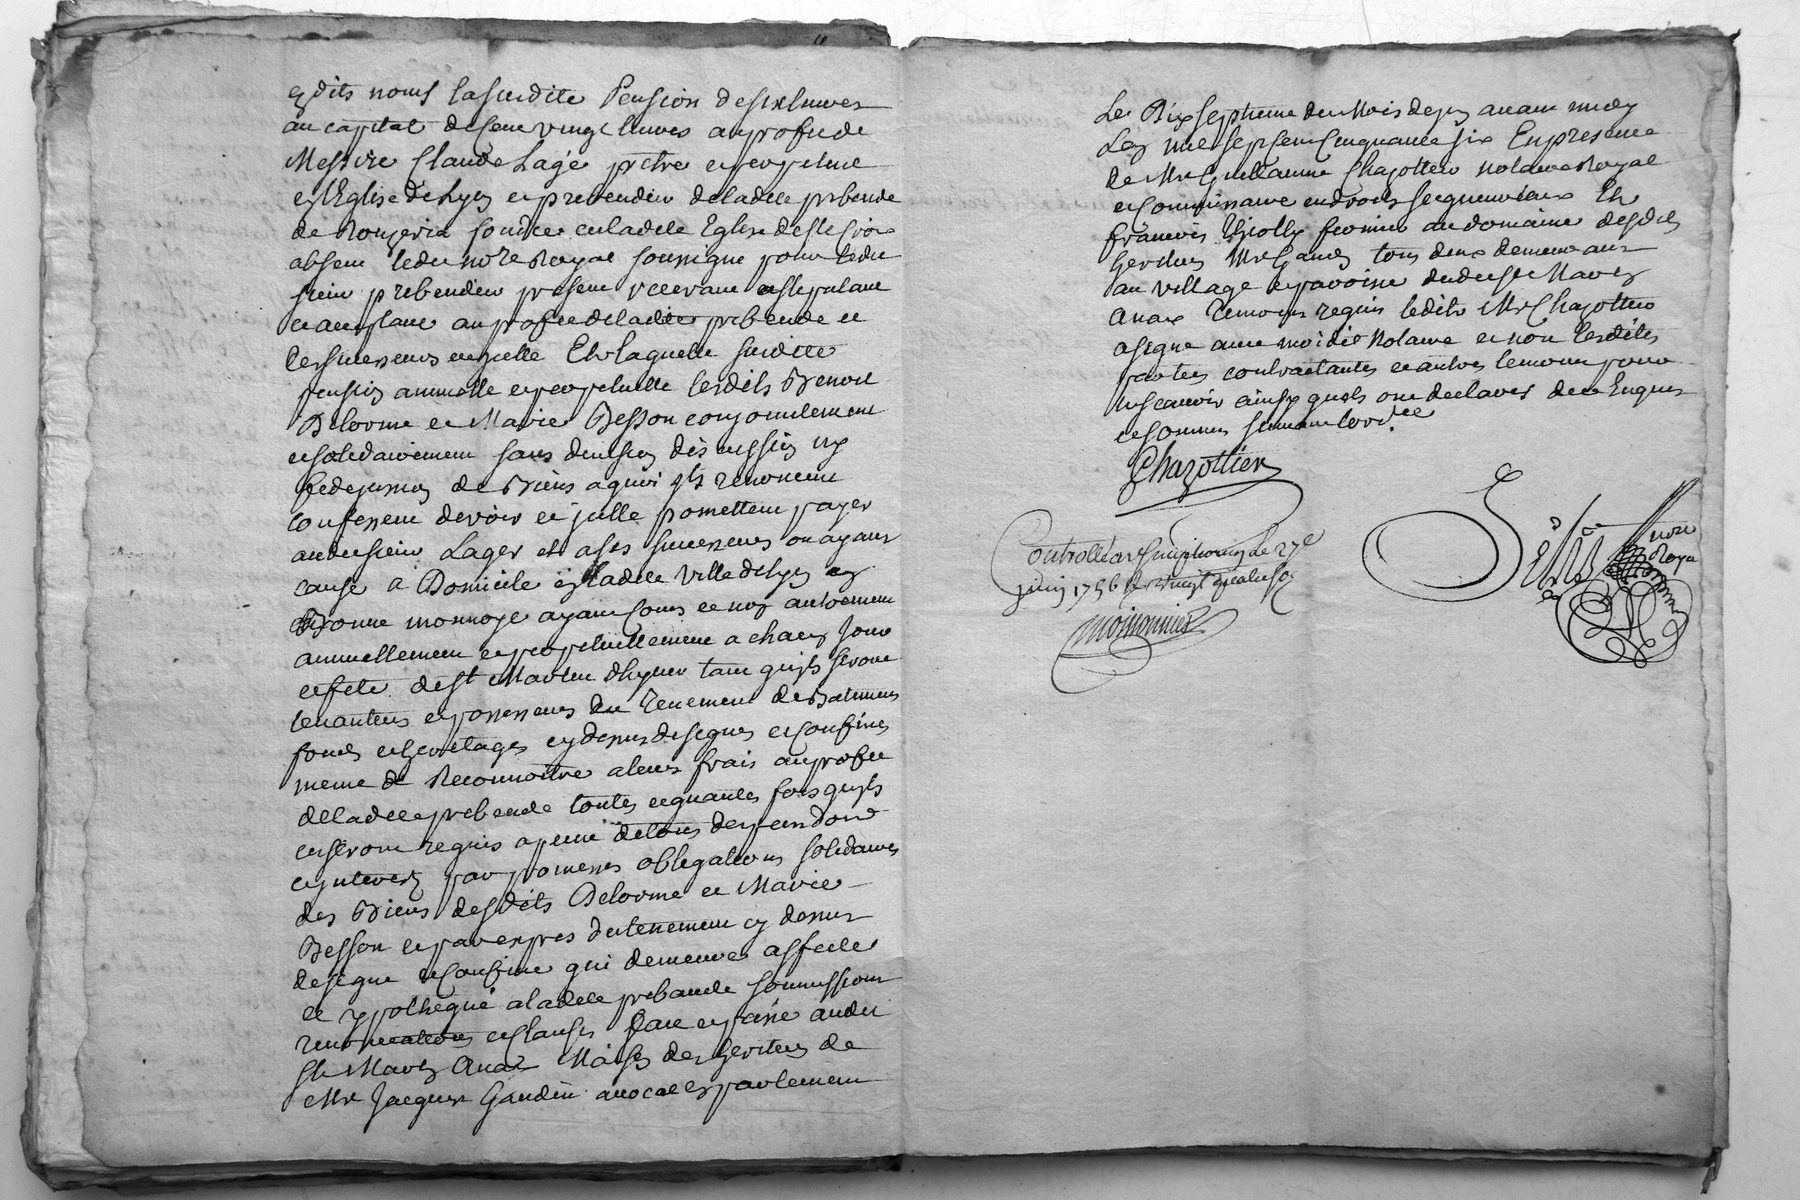 esdits noms lasusdite Pension desixlivres
au capital decent vingt livres auprofit de
Messire Claude Lagé prêtre et perpetuel
en l'Eglise de lyon et prebendier deladite prebende
de Rongeria fondée en ladite Eglise de Ste Croix
absent ledit nore Royal soussigné pour ledit
sieur prebendier present recevant et stipulant
et acceptant au profit deladite prebende et
sessuccesseurs en icelle Et laquelle susdite
pension annuelle et perpetuelle lesdits Benoit
Delorme et Marie Besson conjointement
et solidairement sans division discussion ny
de biens a quoi ils renoncent
confessent devoir et icelle promettent payer
audit sieur Lager et a ses successeurs ou ayant
cause a Domicile en ladite ville de lyon en
Bonne monnoye ayant cours et non autrement
annuellement et perpetuellement a chacun Jour
et fete de St Martin dhyver tant quils seront
tenantiers et possesseurs du tenement de Batiments
fonds et heritages cy dessus designes et Confinés
meme de Reconnoitre a leurs frais au profit
de ladite prebende toutes et quantes fois quils
en seront requis a peine de tous despens dom
et interets par promesses obligations solidaires
des Biens desdits Delorme et Marie
Besson et par expres du tenement cy dessus
designé et Confiné qui demeure affecté
et ypothequé a ladite prebande soumissions
renonciations et clauses fait et passé audit
St Mavez Maison des heritiers de
Mre Jacques Gaudin avocat en parlement
Le Dix septieme du Mois dejuin avant midy
Lan mil sept cent Cinquante six En presence
de Mre Guillaume Chazottier notaire Royal
et Commissaire en droits seigneuriaux Et
francois Thiolly fermier au domaine desdits
heritiers Mre Gaudin tous deux demeurant
au village et paroisse dudit St
temoins requis ledit Mre Chazottier
a signé avec moidit Notaire et non lesdites
parties contractantes et autre temoin pour
ne scavoir ainsy quils ont declaré de ce Enquis
et Sommés suivant lord.ce
Chazottier
Controllé a St Simphorien Le 27e
juin 1756 R vingt quatre sol
noire
Royal